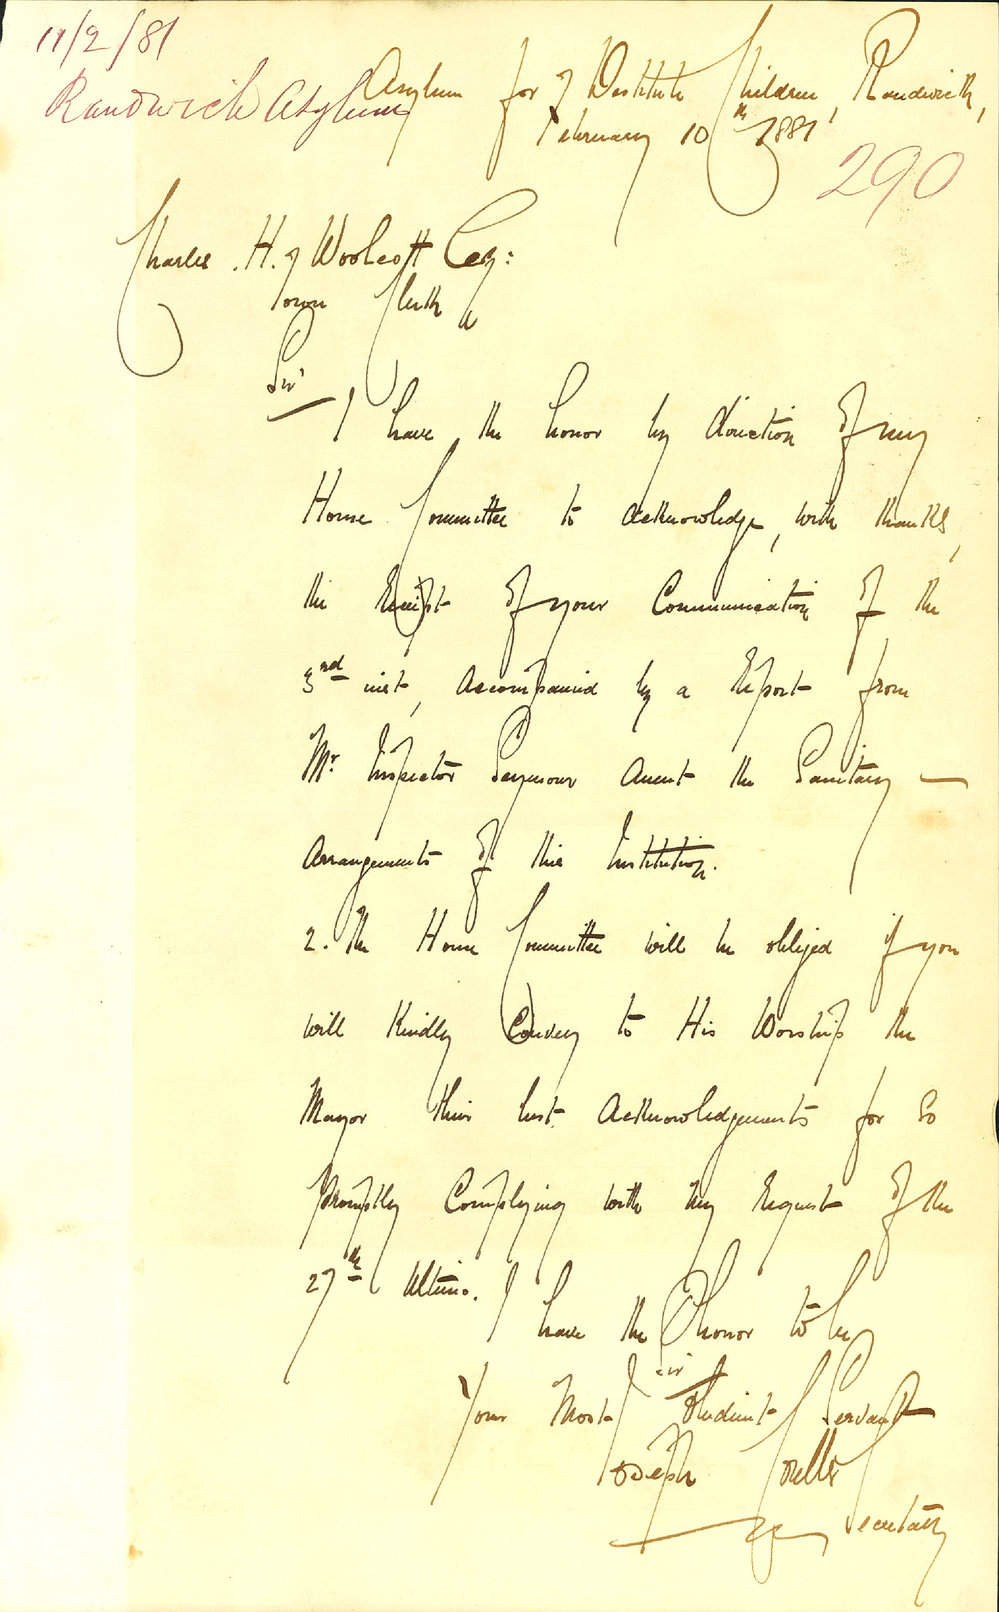 11/2/81
Randwick Asylum
Asylum for y Destitute Children, Randwick,
February 10th 1881
290
Charles . H. y Woolcott Esq:
Town Clerk
Sir
I have the honor by direction of my
House Committee to acknowledge, with thanks,
the Receipt of your Communication of the
3rd inst, accompanied by a Report from
Mr. Inspector Seymour anent the Sanitary —
Arrangements of this Institution.
2. The House Committee will be obliged if you
will Kindly Convey to His Worship the
Mayor their best Acknowledgements for so
promptly Complying with my request of the
27th Ultimo. I have the honor to be
Sir
Your Most Obedient Servant
Joseph
Secretary